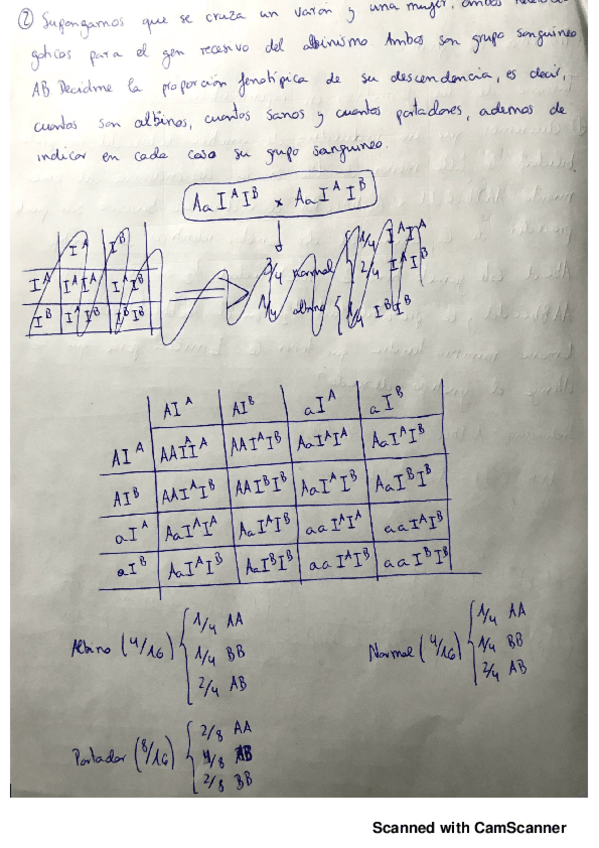 ② Supongamos que se cruza un varón y una mujer, ambos
góticos para el gen recesivo del albinismo Ambos son grupo sanguíneo
AB Decidme la proporción fenotípica de su descendencia, es decir,
cuantos son albinos, cuantos sanos y cuantos portadores, ademas de
indicar en cada caso su grupo sanguineo.
AaIᴬIᴮ x AaIᴬIᴮ
Iᴬ Iᴮ
Iᴬ IᴬIᴬ IᴬIᴮ
Iᴮ IᴬIᴮ IᴮIᴮ
3/4 normal
1/4 albino
1/4 IᴬIᴬ
2/4 IᴬIᴮ
1/4 IᴮIᴮ
AIᴬ AIᴮ aIᴬ aIᴮ
AIᴬ AAIᴬIᴬ AAIᴬIᴮ AaIᴬIᴬ AaIᴬIᴮ
AIᴮ AAIᴬIᴮ AAIᴮIᴮ AaIᴬIᴮ AaIᴮIᴮ
aIᴬ AaIᴬIᴬ AaIᴬIᴮ aaIᴬIᴬ aaIᴬIᴮ
aIᴮ AaIᴬIᴮ AaIᴮIᴮ aaIᴬIᴮ aaIᴮIᴮ
Albino (4/16) 1/4 AA
1/4 BB
2/4 AB
Normal (4/16) 1/4 AA
1/4 BB
2/4 AB
Portador (8/16) 2/8 AA
4/8 AB
2/8 BB
Scanned with CamScanner